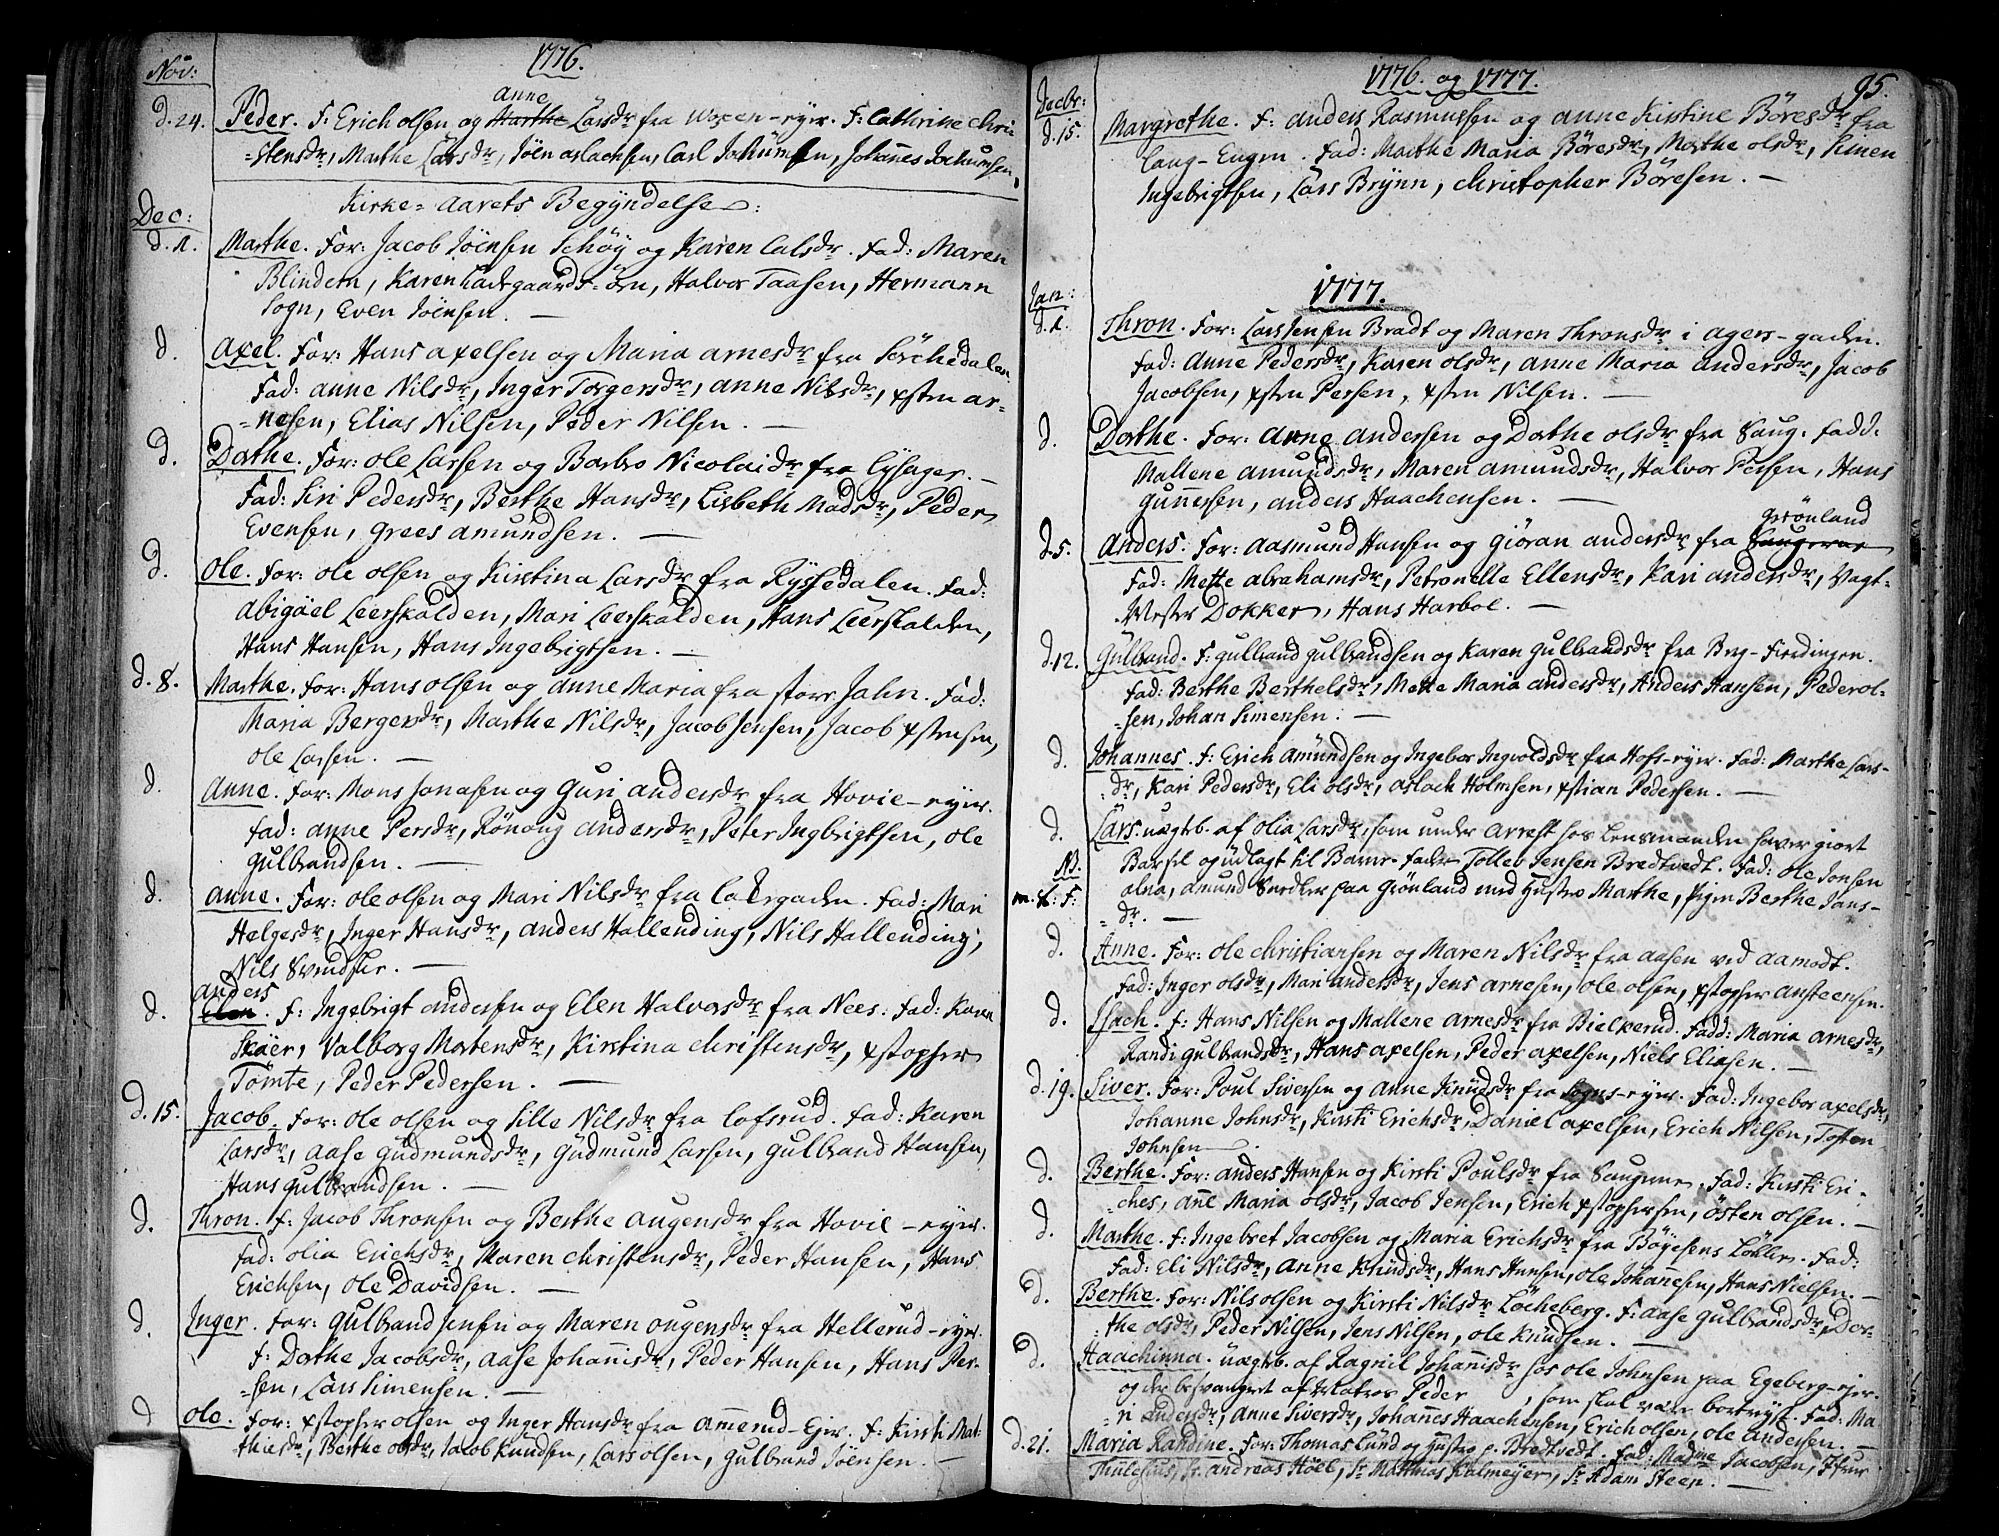 1776.
Nov:
d. 24. Peder. F: Erich olsen og Marthe Anne Larsdr fra Woxen-eyer. F: Cathrine Chri
=stensdr, Marthe Larsdr, Jöen aslachsen, Carl Jochumsen, Johanes Jochumsen,
Kirke-Aarets Begyndelse:
Dec:
d. 1. Marthe. For: Jacob Jöensen Schöy og Karen Calsdr. Fad: Maren
Blindern, Karen Ladegaards-öen, Halvor Taasen, Hermann
Sogn, Even Jöensen. —
d. Axel. For: Hans axelsen og Maria arnesdr fra Sörchedalen.
Fad: anne Nilsdr, Inger Torgersdr, anne Nilsdr, xsten ar-
=nesen, Elias Nilsen, Peder Nilsen. —
d. Dorthe. For: ole Larsen og Barbro Nicolaidr fra Lysager. —
Fad: Siri Pedersdr, Berthe Hansdr, Lisbeth Madsdr, Peder
Evensen, grees amundsen. —
d. Ole. For: ole olsen og Kirstina Larsdr fra Ryssedalen. Fad:
Abigael Leerskalden, Mari Leerskalden, Hans Leerskalden,
Hans Hansen, Hans Ingebrigtsen. —
d. 8. Marthe. For: Hans olsen og anne Maria fra store Jahn. Fad:
Maria Bergersdr, Marthe Nilsdr, Jacob Jensen, Jacob xstensen,
ole Larsen. —
d. Anne. For: Mons Jonasen og Guri andersdr fra Hovie-eyer.
Fad: anne Persdr, Rönoug andersdr, Peter Ingbrigtsen, ole
gulbrandsen. —
d. Anne. For: ole olsen og Mari Nilsdr fra Lakergaden. Fad: Mari
Helgesdr, Inger Hansdr, anders Hallending, Nils Hallending,
Nils Svendser. —
d. Elen Anders. F: Ingebrigt andersen og Elen Halvorsdr fra Nees. Fad: Karen
Sköer, Valborg Mortensdr, Kirstina Christensdr, xstopher
Tomte, Peder Pedersen. —
d. 15. Jacob. For: ole olsen og Sille Nilsdr fra Lofsrud. Fad: Karen
Larsdr, aase gudmundsdr, gudmund Larsen, gulbrand Hansen,
Hans gulbrandsen. —
d. Thron. F: Jacob Thronsen og Berthe augensdr fra Hovie-eyer.
Fad: olia Erichsdr, Maren Christensdr, Peder Hansen, Hans
Erichsen, ole Davidsen. —
d. Inger. For: Gulbrand Jensen og Maren ougensdr fra Hellerud-eyer.
F: Dorthe Jacobsdr, aase Johanisdr, Peder Hansen, Hans Per-
=sen, Lars Simensen. —
d. Ole. For: xstopher olsen og Inger Hansdr fra Amerud-Ejer. F: Kirsti Mat-
thiesdr, Berthe olsdr, Jacob Knudsen, Lars olsen, gulbrand Jöensen. —
1776. og 1777. 95.
Decbr:
d. 15. Margrethe. F: anders Rasmussen og anne Kirstine Böresdr fra
Lang-Engen. Fad: Marthe Maria Böresdr, Marthe olsdr, Simen
Ingebrigtsen, Lars Brynn, christopher Böresen. —
1777.
Jan:
d. 1. Thron. For: Lars Jensen Bradt og Maren Thronsdr i agers-gaden.
Fad: Anne Pedersdr, Karen olsdr, anne Maria andersdr, Jacob
Jacobsen, xsten Persen, xsten Nilsen. —
d. Dorthe. For: Arne andersen og Dorthe olsdr fra Haug. Fadd:
Mallene amundsdr, Maren amundsdr, Halvor Persen, Hans
gunersen, anders Haachensen. —
d. 5. Anders. For: Aasmund Hansen og Giöran andersdr fra Haugerue Grönland
Fad: Mette abrahamsdr, Petronelle Ellensdr, Kari andersdr, Vagt-
Mester Dokker, Hans Harboe. —
d. 12. Gulbrand. F: gulbrand gulbrandsen og Karen gulbrandsdr fra Bry-Fierdingen.
Fad: Berthe Berthelsdr, Mette Maria andersdr, Anders Hansen, Peder ol-
=sen, Johan Simensen. —
d. Johannes. F: Erich Amundsen og Ingebor Ingvoldsdr fra Hofs-eyer. Fad: Marthe Lars-
=dr, Kari Pedersdr, Eli olsdr, aslach Holmsen, xstian Pedersen. —
d. Lars. uægteb. af olia Larsdr, som under Arrest hos Lensmanden haver giort
NB. Barsel og udlagt til Barne-fader Tollev Jensen Bredtvedt. Fad: ole Jonsen
alna, amund Snedker paa Grönland med Hustro Marthe, Pigen Berthe Jans-
=dr. —
d. Anne. For: ole christiansen og Maren Nilsdr fra aasen ved aamodt.
Fad: Inger olsdr, Mari andersdr, Jens arnesen, ole olsen, xstopher Ansteensen.
d. Isach. F: Hans Nilsen og Mallene arnesdr fra Bielkerud. Fadd: Maria arnesdr,
Randi gulbrandsdr, Hans axelsen, Peder axelsen, Niels Eliasen. —
d. 19. Siver. For: Poul Siversen og Anne Knudsdr fra Sogns-eyer. Fad: Ingebor axelsdr,
Johanne Johnsdr, Kirsti Erichsdr, Daniel axelsen, Erich Nilsen, Tosten
Johnsen —
d. Berthe. For: anders Hansen og Kirsti Poulsdr fra Haugerue. Fad: Kirsti Eri-
=ches, ane Maria olsdr, Jacob Jensen, Erich xstophersen, östen olsen. —
d. Marthe. F: Ingebret Jacobsen og Maria Erichsdr fra Böyesens Lökke. Fad:
Fad: Eli Nilsdr, Anne Knudsdr, Hans Hansen, ole Johannesen, Hans Nielsen. —
d. Berthe. For: Nils olsen og Kirsti Nilsdr Löcheberg. F: aase gulbrandsdr, Dor-
=the olsdr, Peder Nilsen, Jens Nilsen, ole Knudsen. —
d. Haachinna. uægteb. af Ragnil Johannisdr hos ole Johnsen paa Egeberg-ejer.
og der besvangret af Matros Peder , som skal være bortrejst. Fad: Ma
=ri andersdr, Anne Siversdr, Johannes Haachensen, Erich olsen, ole Andersen. —
d. 21. Maria Randine. For: Thomas Lund og Hustro p. Bredtvedt. Fad: Madme Jacobsen, Jfru
Thulesius, Sr. andreas Höel, Sr Matthias Kalmeyer, Sr Adam Steen. —